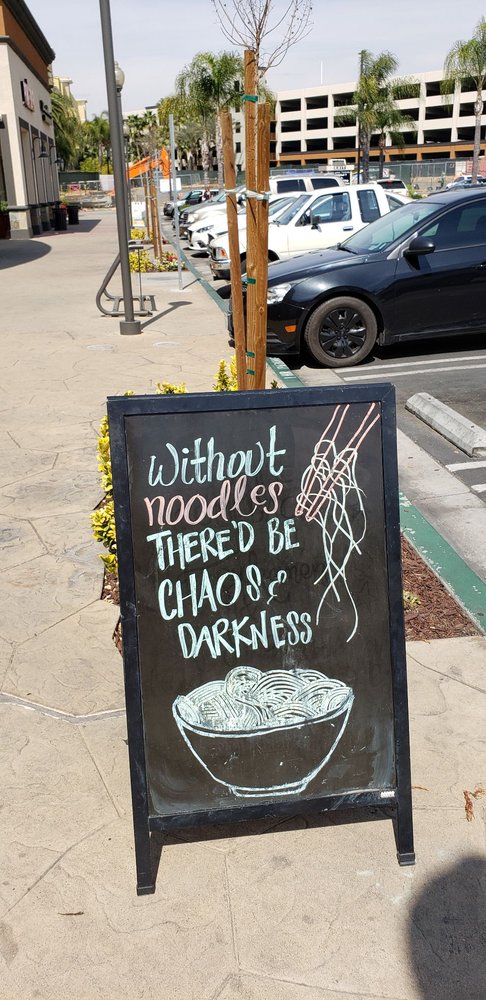 Without
noodles
THERE'D BE
CHAOS &
DARKNESS